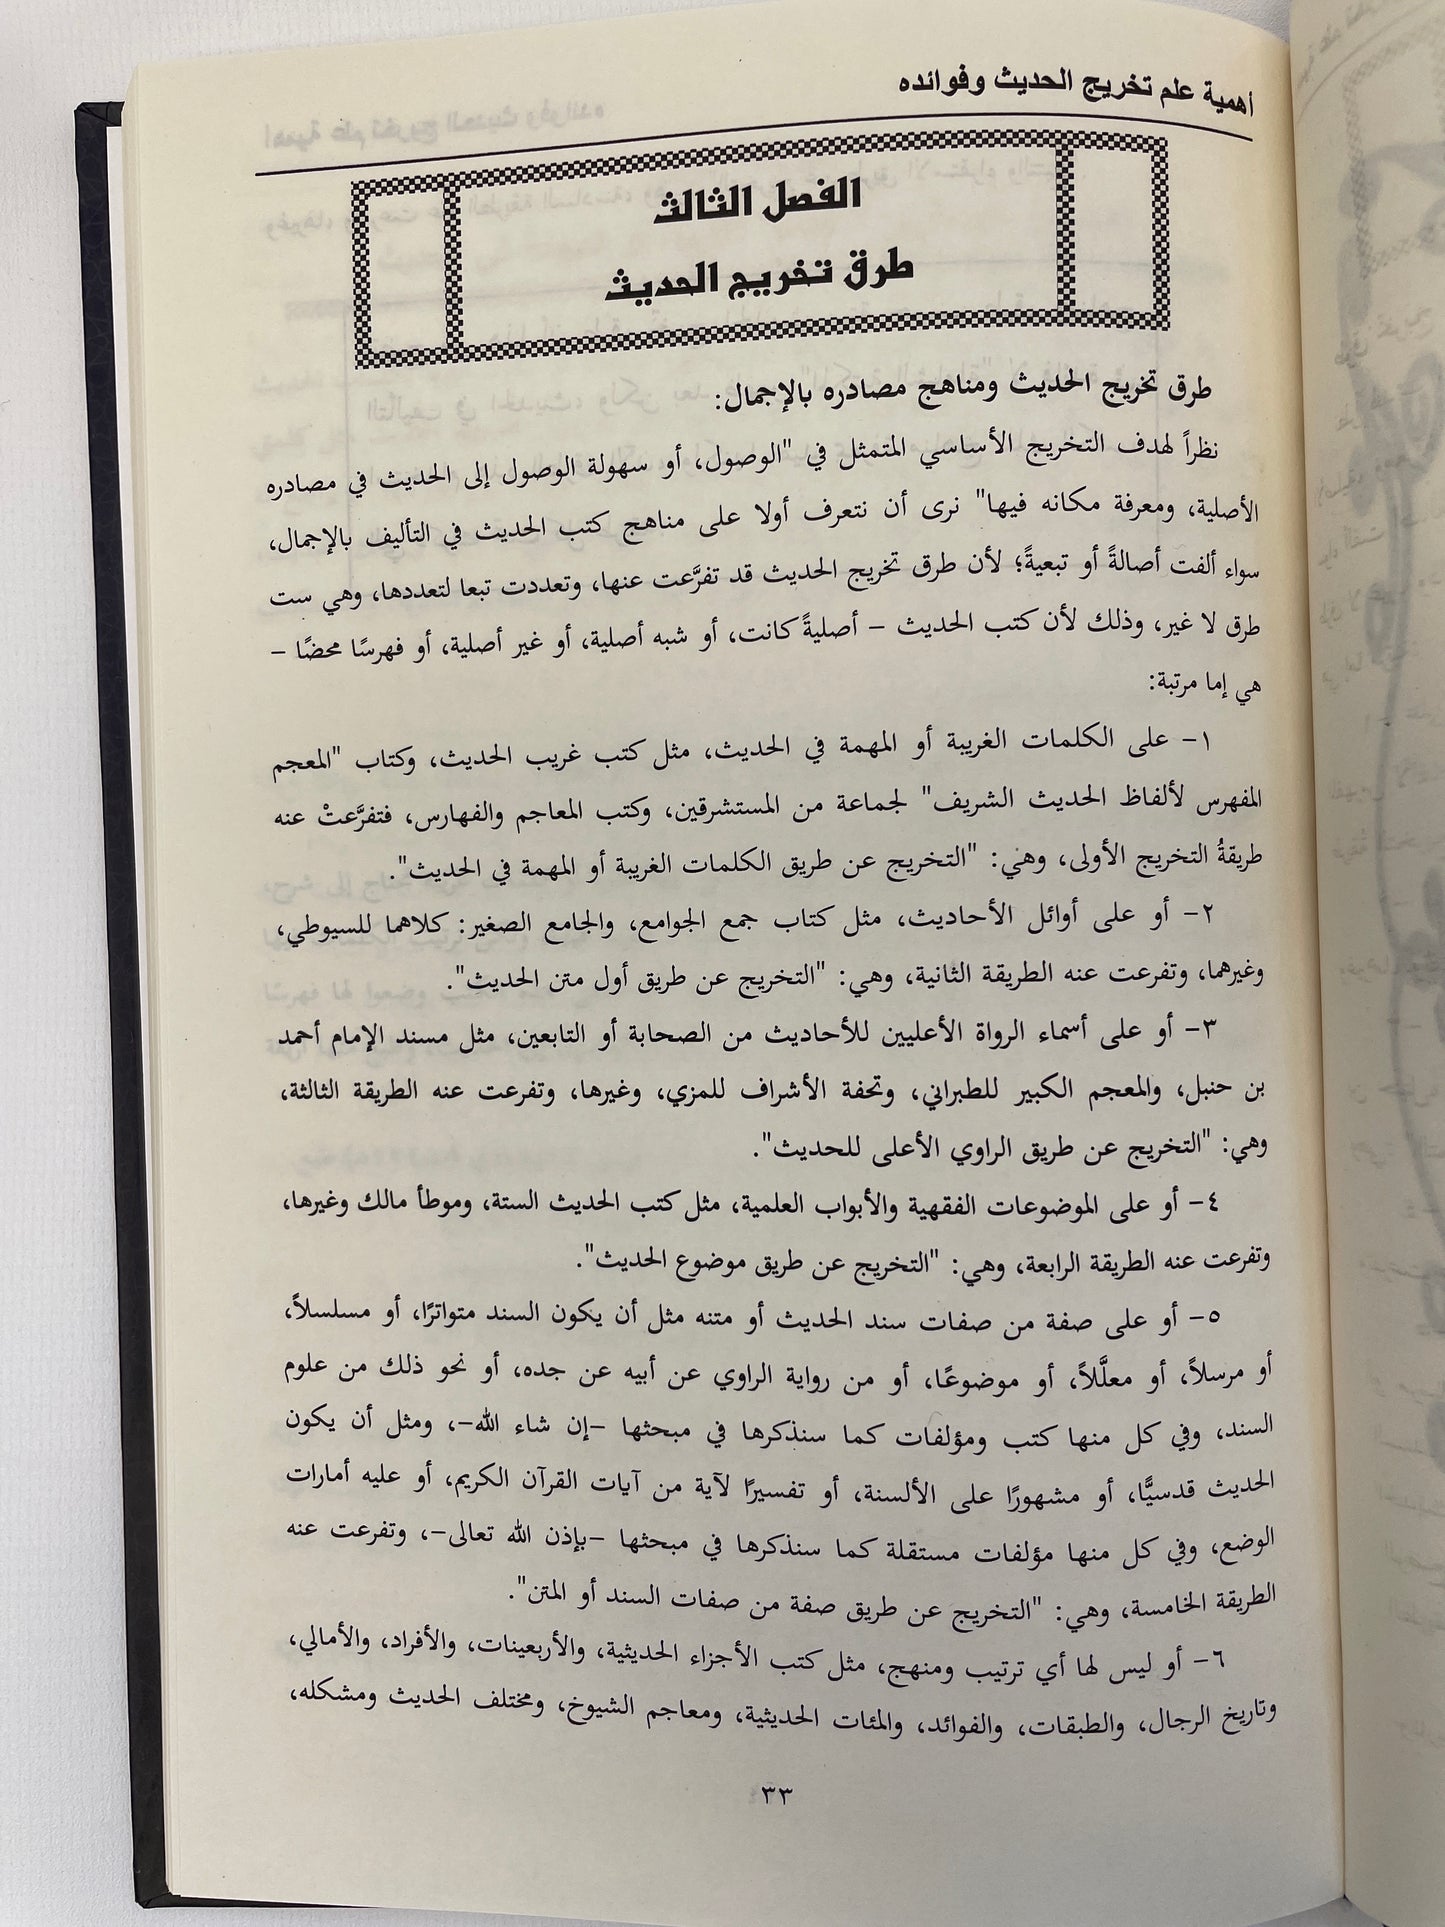 أهمية علم تخريج الحديث وفوائده
الفصل الثالث
طرق تخريج الحديث
طرق تخريج الحديث ومناهج مصادره بالإجمال:
نظراً لهدف التخريج الأساسي المتمثل في "الوصول، أو سهولة الوصول إلى الحديث في مصادره
الأصلية، ومعرفة مكانه فيها" نرى أن نتعرف أولا على مناهج كتب الحديث في التأليف بالإجمال،
سواء ألفت أصالةً أو تبعيةً؛ لأن طرق تخريج الحديث قد تفرَّعت عنها، وتعددت تبعا لتعددها، وهي ست
طرق لا غير، وذلك لأن كتب الحديث – أصليةً كانت، أو شبه أصلية، أو غير أصلية، أو فهرسًا محضًا –
هي إما مرتبة:
١- على الكلمات الغريبة أو المهمة في الحديث، مثل كتب غريب الحديث، وكتاب "المعجم
المفهرس لألفاظ الحديث الشريف" لجماعة من المستشرقين، وكتب المعاجم والفهارس، فتفرَّعتْ عنه
طريقةُ التخريج الأولى، وهي: "التخريج عن طريق الكلمات الغريبة أو المهمة في الحديث".
٢- أو على أوائل الأحاديث، مثل كتاب جمع الجوامع، والجامع الصغير: كلاهما للسيوطي،
وغيرهما، وتفرعت عنه الطريقة الثانية، وهي: "التخريج عن طريق أول متن الحديث".
٣- أو على أسماء الرواة الأعليين للأحاديث من الصحابة أو التابعين، مثل مسند الإمام أحمد
بن حنبل، والمعجم الكبير للطبراني، وتحفة الأشراف للمزي، وغيرها، وتفرعت عنه الطريقة الثالثة،
وهي: "التخريج عن طريق الراوي الأعلى للحديث".
٤- أو على الموضوعات الفقهية والأبواب العلمية، مثل كتب الحديث الستة، وموطأ مالك وغيرها،
وتفرعت عنه الطريقة الرابعة، وهي: "التخريج عن طريق موضوع الحديث".
٥- أو على صفة من صفات سند الحديث أو متنه مثل أن يكون السند متواترًا، أو مسلسلاً،
أو مرسلاً، أو معلَّلاً، أو موضوعًا، أو من رواية الراوي عن أبيه عن جده، أو نحو ذلك من علوم
السند، وفي كل منها كتب ومؤلفات كما سنذكرها في مبحثها –إن شاء الله–، ومثل أن يكون
الحديث قدسيًّا، أو مشهورًا على الألسنة، أو تفسيرًا لآية من آيات القرآن الكريم، أو عليه أمارات
الوضع، وفي كل منها مؤلفات مستقلة كما سنذكرها في مبحثها –بإذن الله تعالى–، وتفرعت عنه
الطريقة الخامسة، وهي: "التخريج عن طريق صفة من صفات السند أو المتن".
٦- أو ليس لها أي ترتيب ومنهج، مثل كتب الأجزاء الحديثية، والأربعينات، والأفراد، والأمالي،
وتاريخ الرجال، والطبقات، والفوائد، والمئات الحديثية، ومعاجم الشيوخ، ومختلف الحديث ومشكله،
٣٣